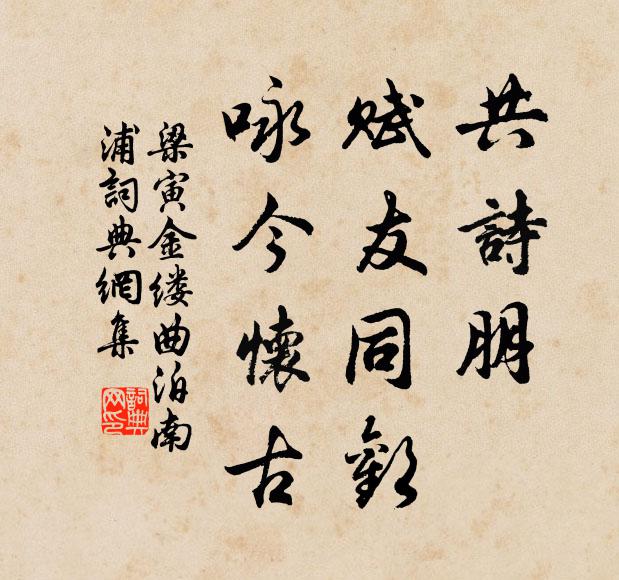 共詩朋
賦友同歡
咏今懷古
梁寅金缕曲泊南
浦詞典網集
詞典
网印